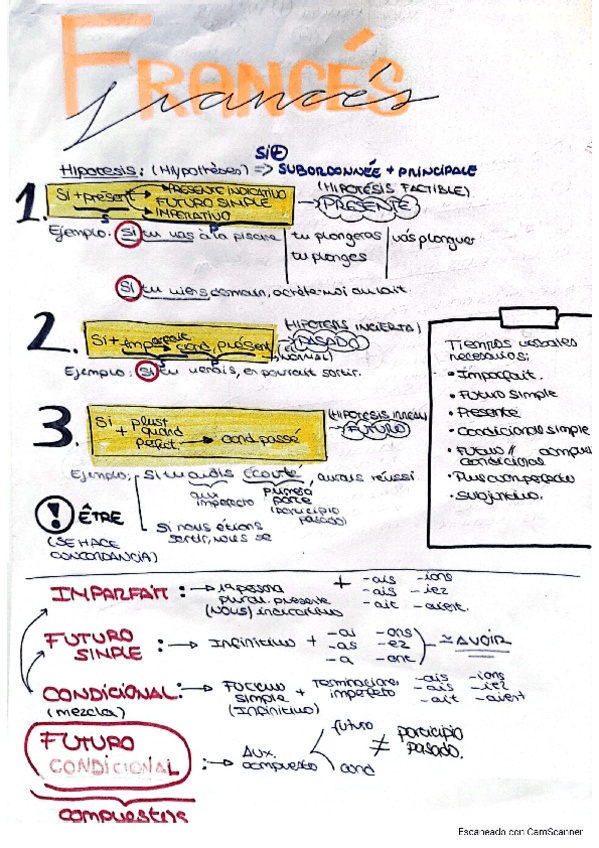 FRANCÉS
francés
Si⊕
Hipotesis: (Hypothèses) => SUBORDONNÉE + PRINCIPALE
1. Si + présent → PRESENTE INDICATIVO
FUTURO SIMPLE
→ IMPERATIVO
S
P
(HIPOTÉSIS FACTIBLE)
→ PRESENTE
Ejemplo: Si tu vas à la piscine
tu plongeras
tu plonges
vas plonger
Si tu viens demain, achète-moi au lait.
2. Si + imparfait → cond. présent
S
P
(HIPOTESIS INCIERTA)
→ PASADO
(EL NORMAL)
Ejemplo: Si tu venais, en pourrait sortir.
3. Si + plus quand parfait. → cond. passé
(HIPOTESIS IRREAL)
→ FUTURO
Ejemplo: Si tu avais écouté, aurais réussi
aux imperfecto
primera parte (participio pasado)
! ÊTRE
(SE HACE CONCORDANCIA)
Si nous étions sortir, nous se
Tiempos verbales
necesarios:
• Imparfait.
• Futuro simple
• Presente
• Condicional simple
• Futuro //
condicional
• Pluscuamperfecto
• Subjuntivo.
IMPARFAIT: → 1ª persona plural presente (NOUS) indicativo + -ais -ions
-ais -iez
-ait -aient.
FUTURO SIMPLE: → Infinitivo + -ai -ons
-as -ez
-a -ont
≃ AVOIR
CONDICIONAL: (mezcla) → Futuro simple (Infinitivo) + Terminaciones imperfeto -ais -ions
-ais -iez
-ait -aient
FUTURO
CONDICIONAL
compuestos
: → Aux. compuesto
futuro
cond
≠ participio pasado.
Escaneado con CamScanner